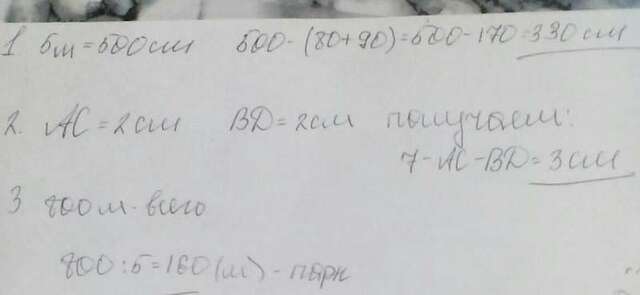 1 5м = 500см 500 - (80+90) = 500 - 170 = 330 см
2. AC = 2 см BD = 2 см получаем:
7 - AC - BD = 3 см
3 800 м - всего
800 : 5 = 160 (м) - парк